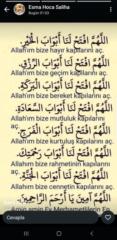 Esma Hoca Saliha
Bugün
اَللّٰهُمَّ افْتَحْ لَنَا أَبْوَابَ الْخَيْرِ.
Allah'ım bize hayır kapılarını aç.
اَللّٰهُمَّ افْتَحْ لَنَا أَبْوَابَ الرِّزْقِ.
Allah'ım bize geçim kapılarını aç.
اَللّٰهُمَّ افْتَحْ لَنَا أَبْوَابَ الْبَرَكَةِ.
Allah'ım bize bereket kapılarını aç.
اَللّٰهُمَّ افْتَحْ لَنَا أَبْوَابَ السَّعَادَةِ.
Allah'ım bize mutluluk kapılarını aç.
اَللّٰهُمَّ افْتَحْ لَنَا أَبْوَابَ الْفَرَجِ.
Allah'ım bize kurtuluş kapılarını aç.
اَللّٰهُمَّ افْتَحْ لَنَا أَبْوَابَ رَحْمَتِكَ.
Allah'ım bize rahmetinin kapılarını aç.
اَللّٰهُمَّ افْتَحْ لَنَا أَبْوَابَ الْجَنَّةِ.
Allah'ım bize cennetin kapılarını aç.
Cevapla